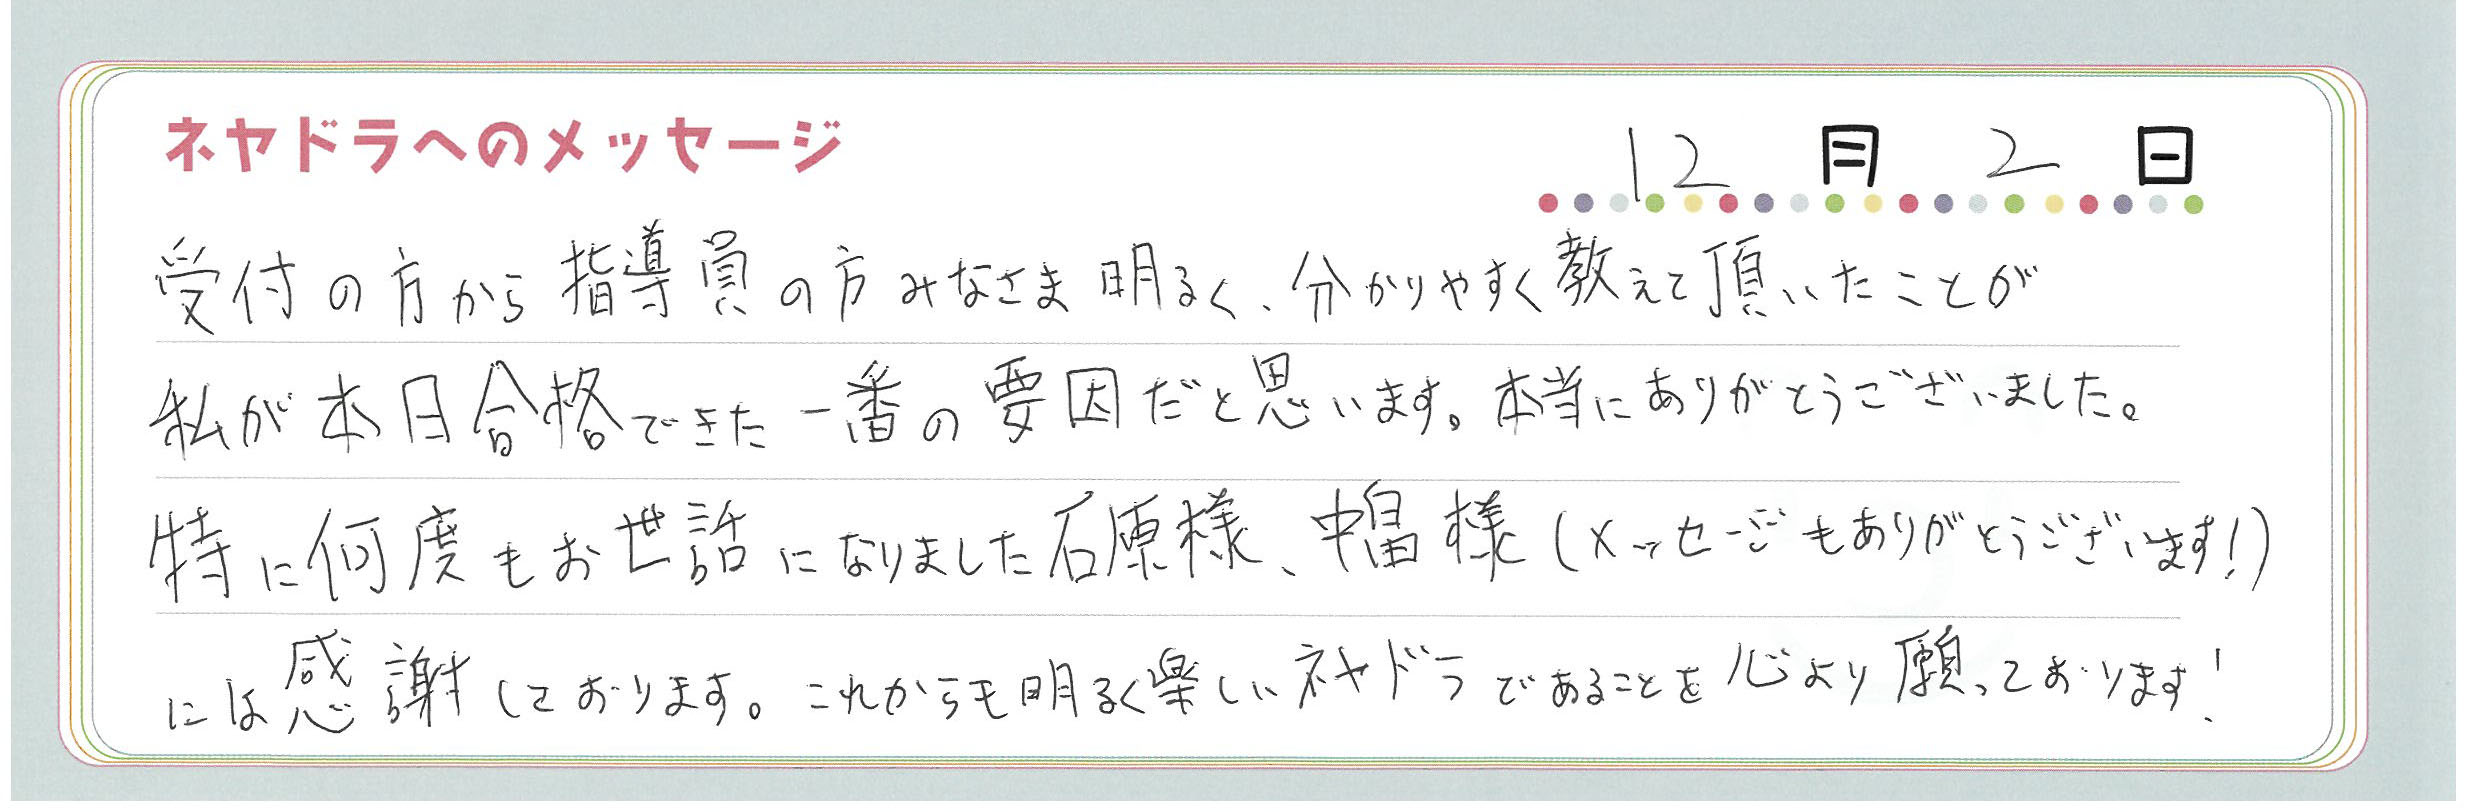 ネヤドラへのメッセージ
12月2日
受付の方から指導員の方みなさま明るく、分かりやすく教えて頂いたことが
私が本日合格できた一番の要因だと思います。本当にありがとうございました。
特に何度もお世話になりました石原様、中畠様(メッセージもありがとうございます!)
には感謝しております。これからも明るく楽しいネヤドラであることを心より願っております!